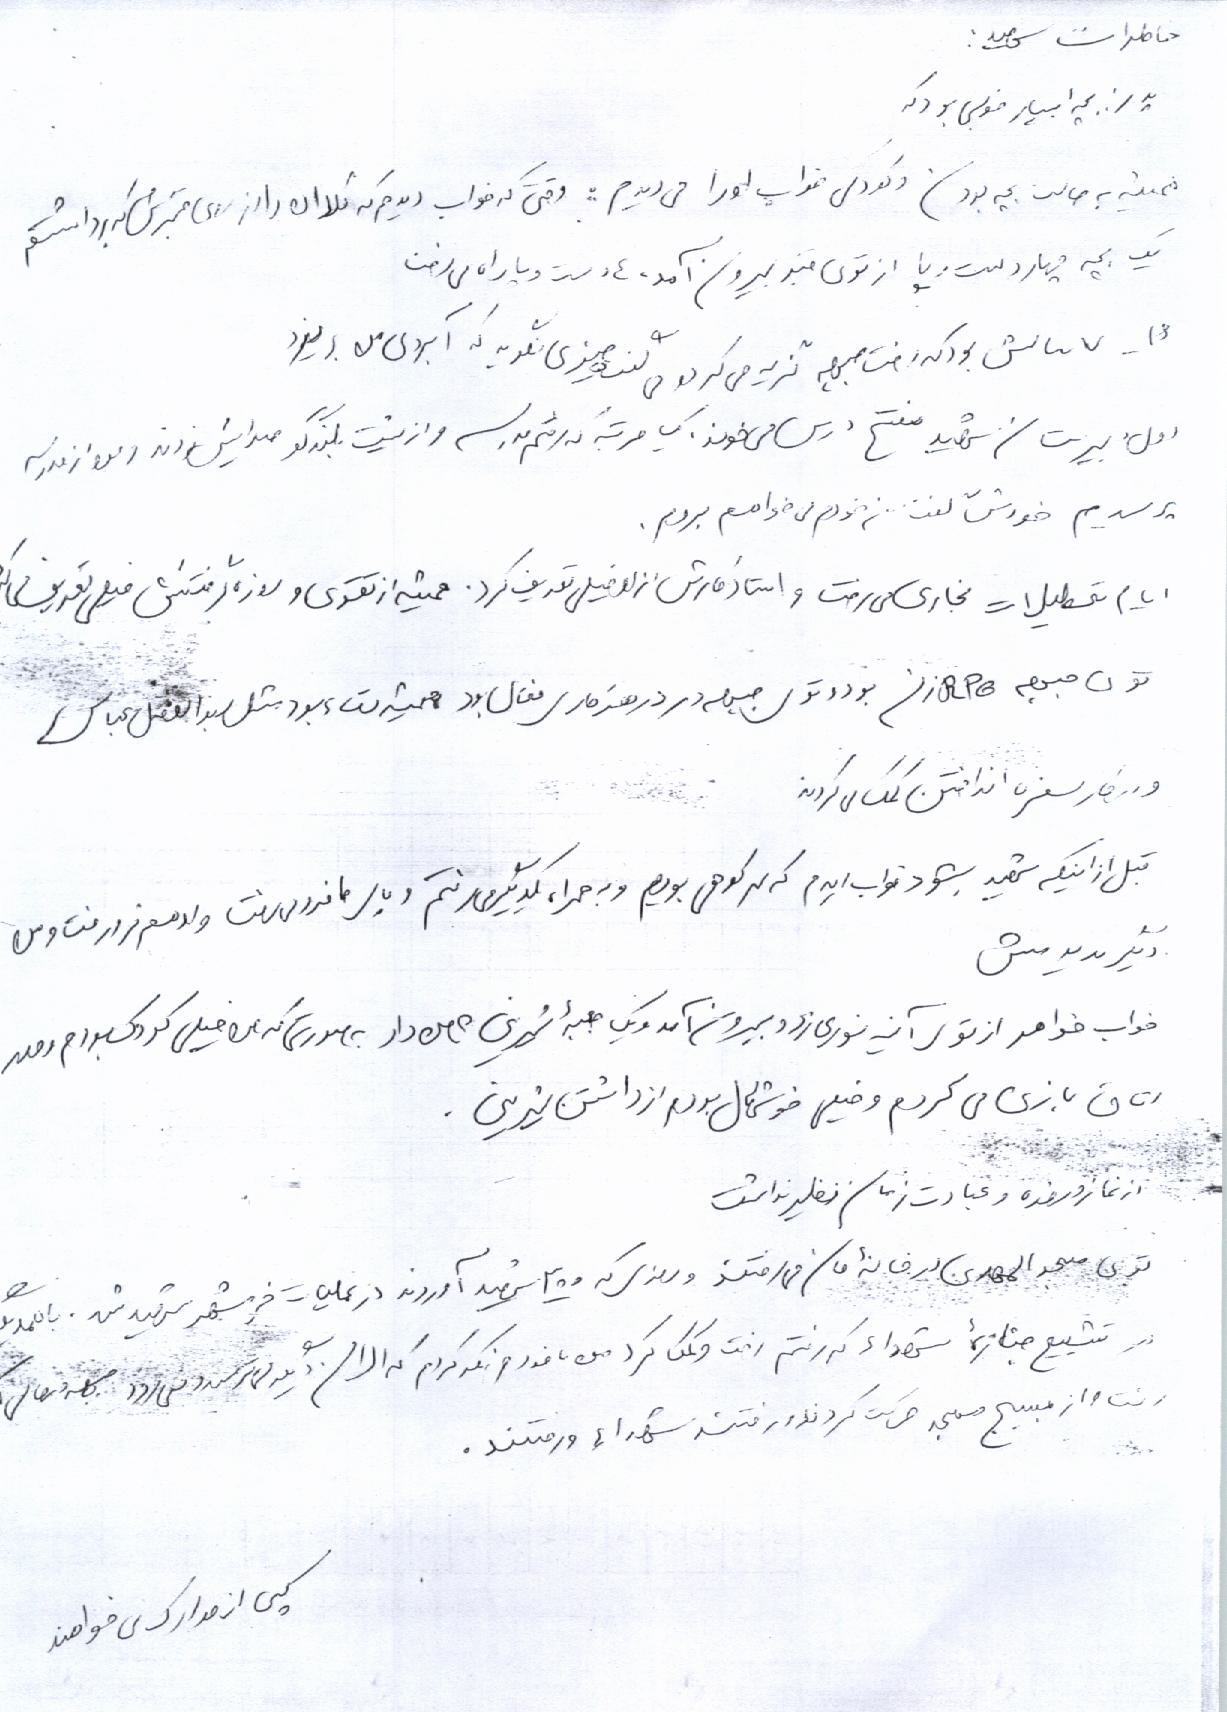 خاطرات شهید:
پدر: بچه بسیار خوبی بود که
همیشه به حالت بچه بودن و کودکی خواب او را می دیدم : وقتی که خواب دیدم که گلدان را از روی قبرش که برداشتم
یک بچه چهار دست و پا از توی قبر بیرون آمد، ۴ دست و پا راه می رفت
۱۶ - ۱۷ سالش بود که رفت جبهه گریه می کرد و می گفت چیزی نگویید که آبروی من بریزد
اول دبیرستان شهید مفتح درس می خوند. یک مرتبه که رفتم مدرسه و از پشت بلندگو صدایش زدند و من از مدرسه
پرسیدم خودش گفت نه خودم می خواهم بروم.
ایام تعطیلات نجاری می رفت و استاد کارش از او خیلی تعریف کرد. همیشه از تقوی و روزه گرفتنش خیلی تعریف می
توی جبهه RPG زن بود و توی جبهه در هر کاری فعال بود همیشه سقاء بود مثل ابوالفضل عباس
و در کار سفره انداختن کمک می کردند
قبل از اینکه شهید بشود خواب دیدم که سر کوهی بودیم و به همراه یکدیگر می رفتیم و پای ما فرو می رفت و او هم فرو رفت و من
دیگر ندیدمش
خواب خواهر از توی آینه نوری زد و بیرون آمد و یک جعبه شیرینی به من داد به صورتی که من خیلی کودک بودم و من
اتاق بازی می کردم و خیلی خوشحال بودم از داشتن شیرینی.
از نماز و روزه و عبادت زمان نظیر نداشت
توی مسجد المهدی در خانه مان می رفتند و روزی که شهید آوردند در عملیات خرمشهر شهید شد.
در تشییع جنازه شهداء که رفتم رفت و کمک کرد من با خودم فکر کردم که الان
رفت و از بسیج مسجد حرکت کردند و رفتند شهداء و رفتند.
کپی از مدارک می خواهند